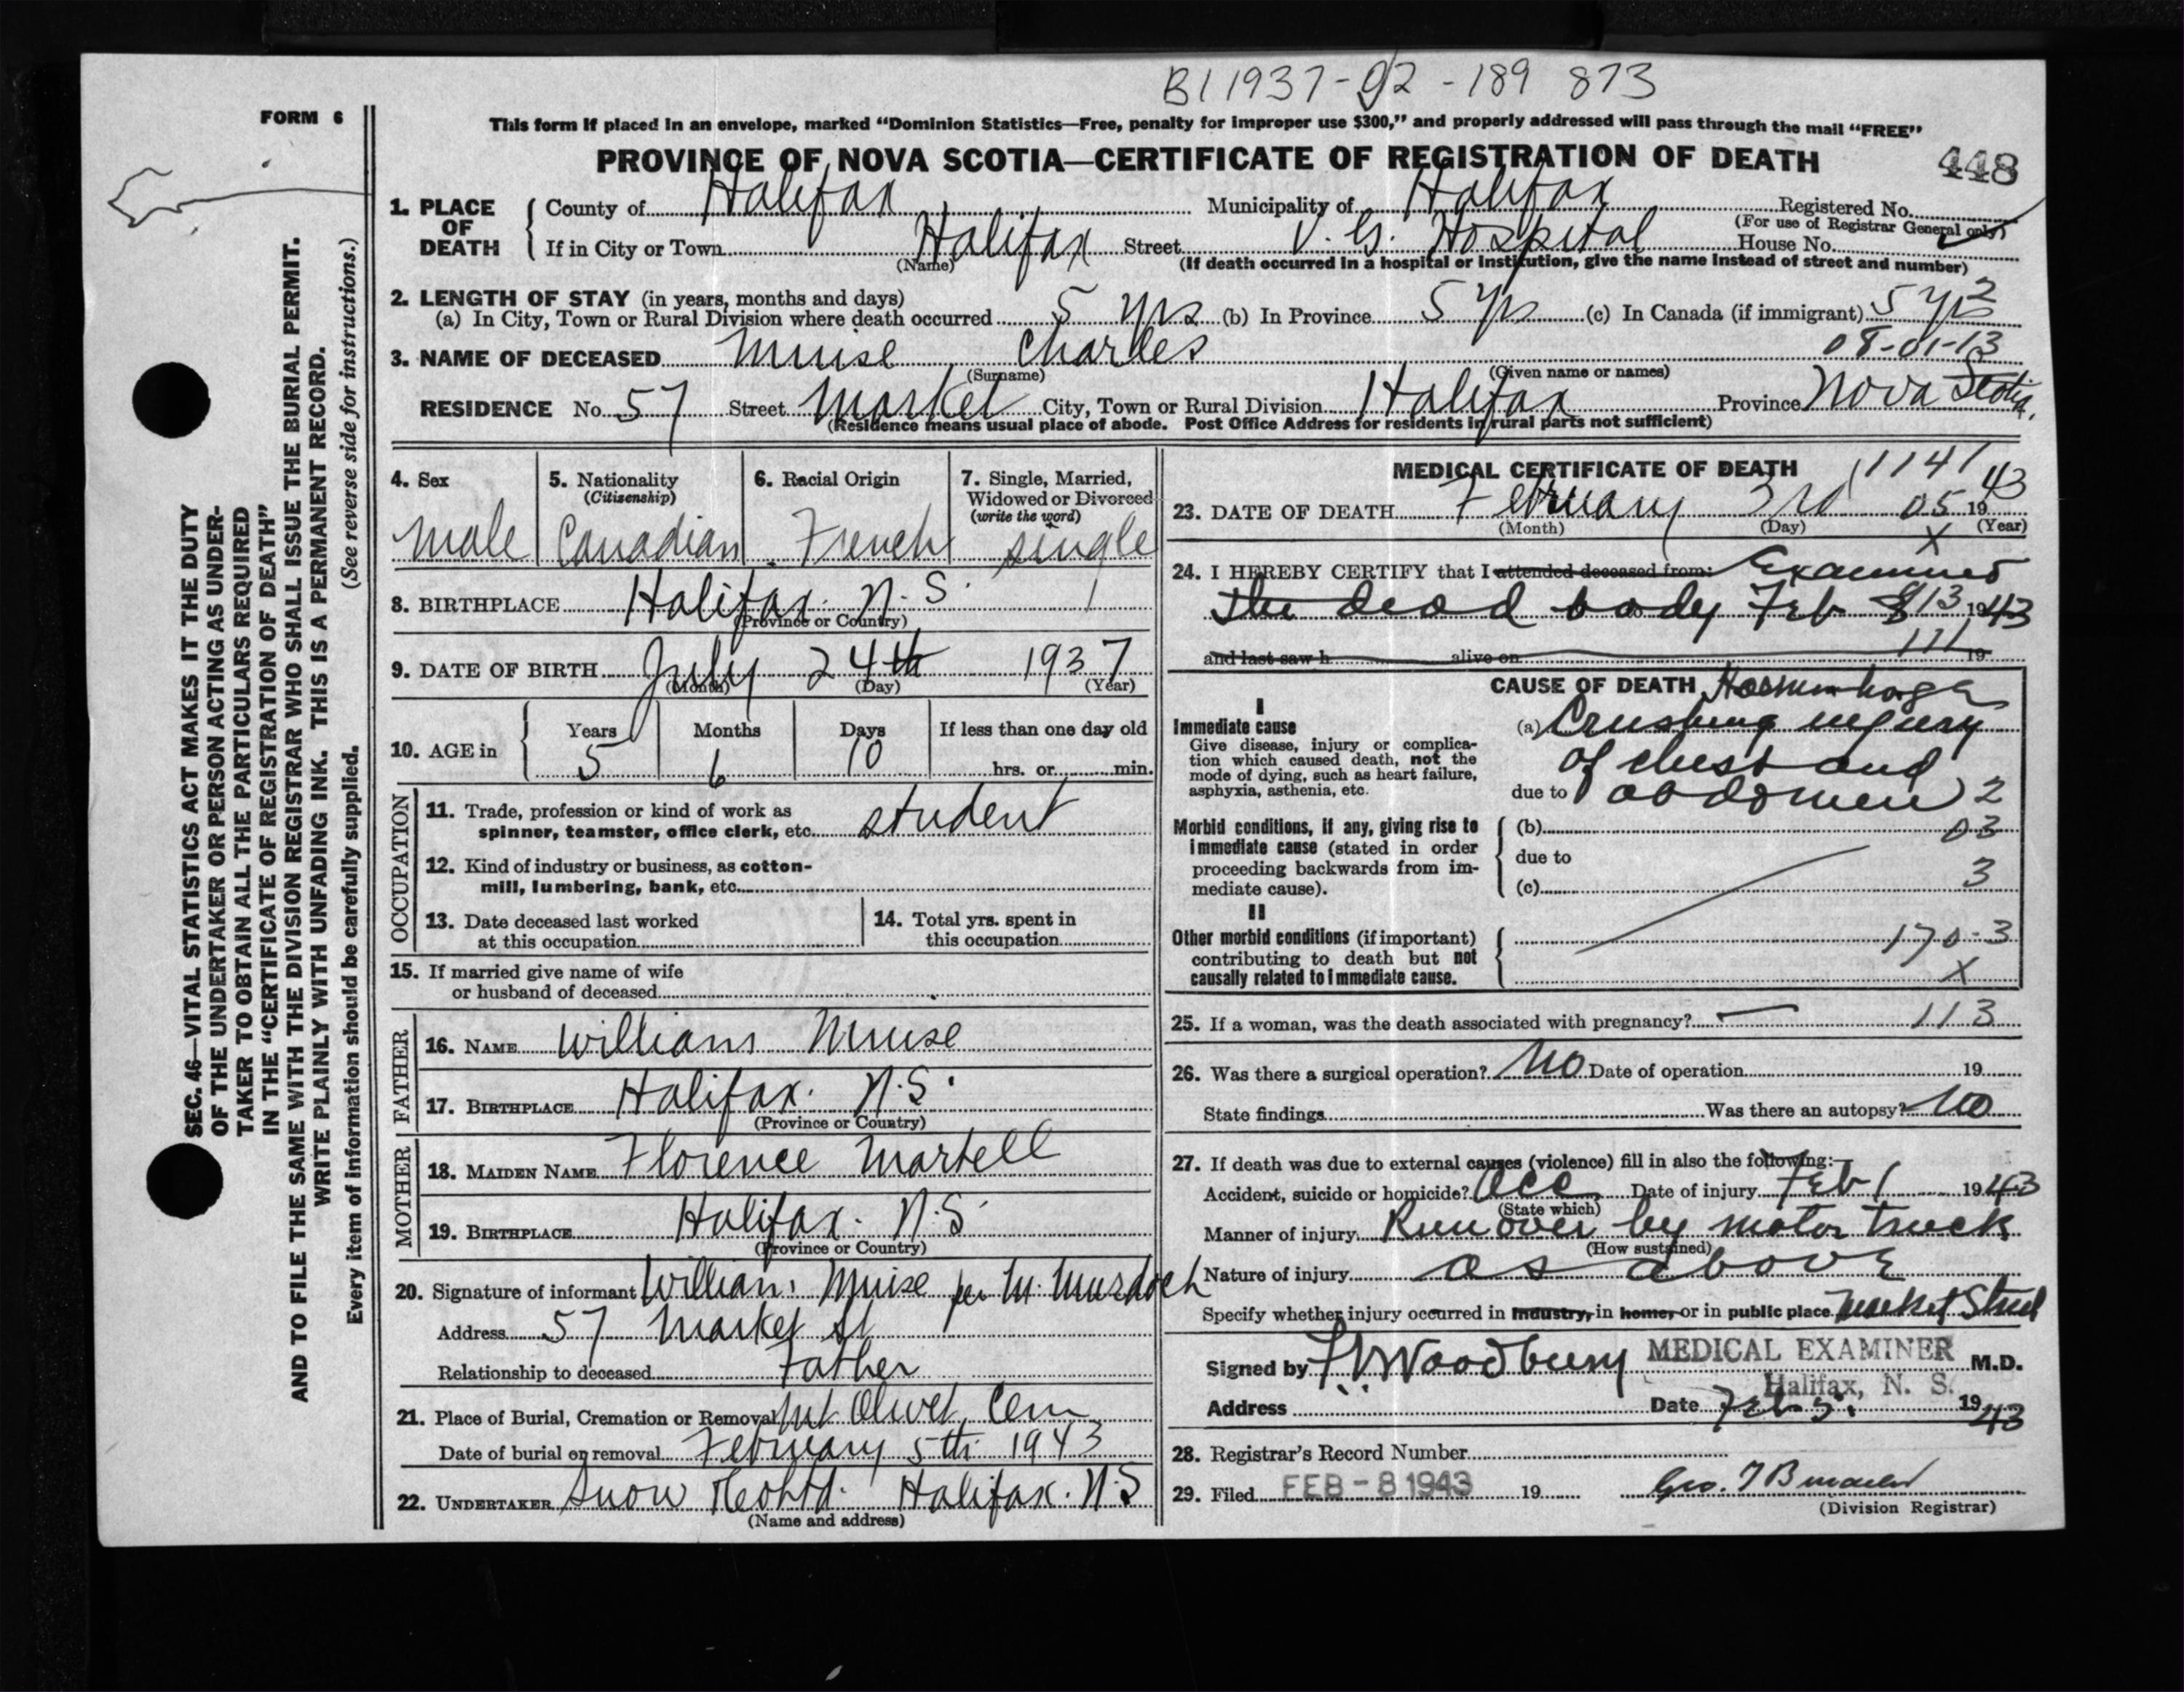 B1 1937-02-189 873
FORM 6
This form if placed in an envelope, marked "Dominion Statistics—Free, penalty for improper use $300," and properly addressed will pass through the mail "FREE"
PROVINCE OF NOVA SCOTIA—CERTIFICATE OF REGISTRATION OF DEATH
448
1. PLACE OF DEATH
County of Halifax Municipality of Halifax Registered No.
(For use of Registrar General only)
If in City or Town Halifax Street V. G. Hospital House No.
(Name) (If death occurred in a hospital or institution, give the name instead of street and number)
2. LENGTH OF STAY (in years, months and days)
(a) In City, Town or Rural Division where death occurred 5 yrs (b) In Province 5 yrs (c) In Canada (if immigrant) 5 yrs 2
08-01-13
3. NAME OF DECEASED Muise Charles
(Surname) (Given name or names)
RESIDENCE No. 57 Street Market City, Town or Rural Division Halifax Province Nova Scotia.
(Residence means usual place of abode. Post Office Address for residents in rural parts not sufficient)
4. Sex
male
5. Nationality
(Citizenship)
Canadian
6. Racial Origin
French
7. Single, Married,
Widowed or Divorced
(write the word)
single
8. BIRTHPLACE Halifax. N.S.
(Province or Country)
9. DATE OF BIRTH July 24th 1937
(Month) (Day) (Year)
10. AGE in
Years Months Days If less than one day old
5 6 10 hrs. or min.
OCCUPATION
11. Trade, profession or kind of work as
spinner, teamster, office clerk, etc. student
12. Kind of industry or business, as cotton-
mill, lumbering, bank, etc.
13. Date deceased last worked
at this occupation
14. Total yrs. spent in
this occupation
15. If married give name of wife
or husband of deceased
FATHER
16. NAME William Muise
17. BIRTHPLACE Halifax. N.S.
(Province or Country)
MOTHER
18. MAIDEN NAME Florence Martell
19. BIRTHPLACE Halifax. N.S.
(Province or Country)
20. Signature of informant William Muise per M. Murdoch
Address 57 Market St
Relationship to deceased Father
21. Place of Burial, Cremation or Removal Mt Olivet Cem
Date of burial or removal February 5th 1943
22. UNDERTAKER Snow & Co Ltd. Halifax. N.S
(Name and address)
MEDICAL CERTIFICATE OF DEATH 1141
23. DATE OF DEATH February 3rd 05 1943
(Month) (Day) (Year)
X
24. I HEREBY CERTIFY that I attended deceased from: Examined
the dead body Feb 3 13 1943
and last saw h alive on 19
111
CAUSE OF DEATH Haemorrhage
I
Immediate cause
Give disease, injury or complica-
tion which caused death, not the
mode of dying, such as heart failure,
asphyxia, asthenia, etc.
(a) Crushing injury
of chest and
due to abdomen 2
Morbid conditions, if any, giving rise to
immediate cause (stated in order
proceeding backwards from im-
mediate cause).
(b) 03
due to
(c) 3
II
Other morbid conditions (if important)
contributing to death but not
causally related to immediate cause.
170-3
X
25. If a woman, was the death associated with pregnancy? — 113
26. Was there a surgical operation? No Date of operation 19
State findings Was there an autopsy? No
27. If death was due to external causes (violence) fill in also the following:—
Accident, suicide or homicide? Acc Date of injury Feb 1 1943
(State which)
Manner of injury Run over by motor truck
(How sustained)
Nature of injury as above
Specify whether injury occurred in industry, in home, or in public place Market Street
Signed by Woodbury MEDICAL EXAMINER M.D.
Halifax, N. S.
Address Date Feb 5. 1943
28. Registrar's Record Number
29. Filed FEB-8 1943 19 Geo.
(Division Registrar)
SEC. 46—VITAL STATISTICS ACT MAKES IT THE DUTY
OF THE UNDERTAKER OR PERSON ACTING AS UNDER-
TAKER TO OBTAIN ALL THE PARTICULARS REQUIRED
IN THE "CERTIFICATE OF REGISTRATION OF DEATH"
AND TO FILE THE SAME WITH THE DIVISION REGISTRAR WHO SHALL ISSUE THE BURIAL PERMIT.
WRITE PLAINLY WITH UNFADING INK. THIS IS A PERMANENT RECORD.
Every item of information should be carefully supplied. (See reverse side for instructions.)